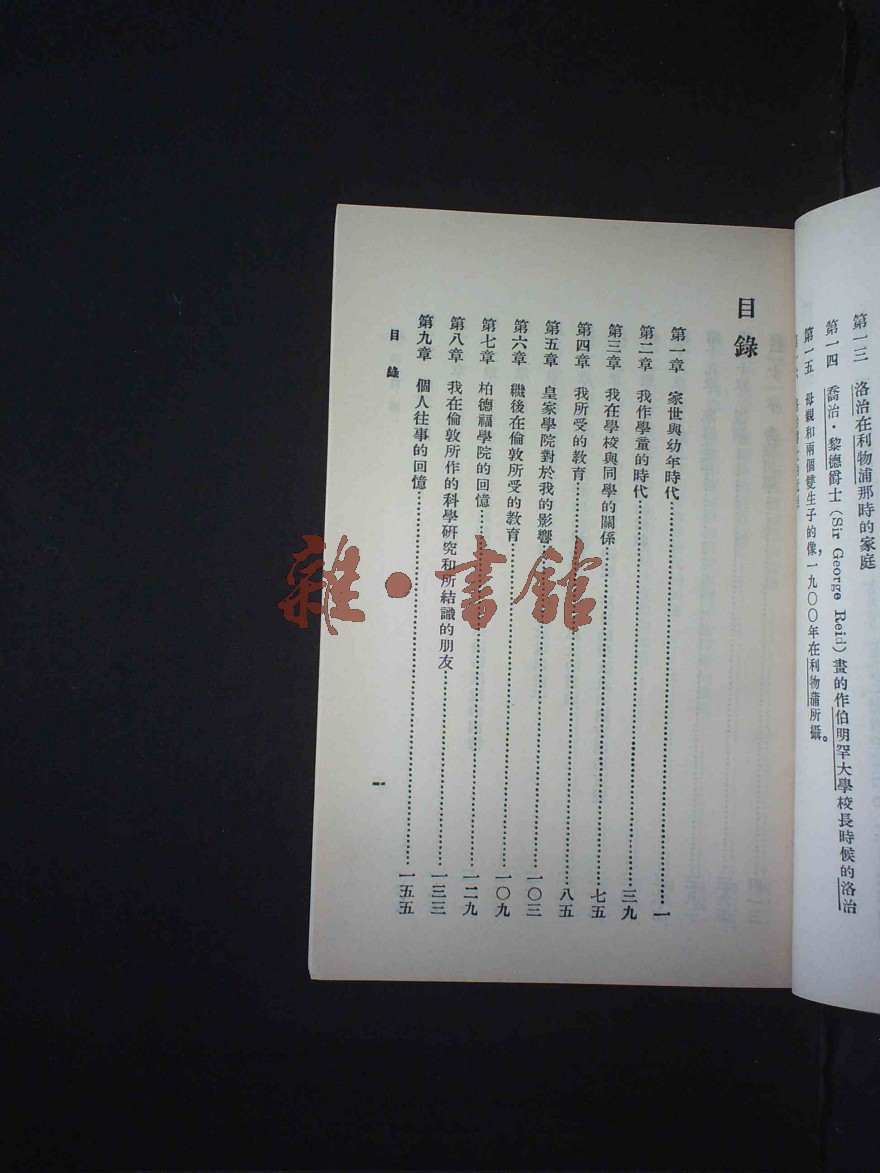 第一三　洛治在利物浦那時的家庭
第一四　喬治・黎德爵士（Sir George Reid）畫的作伯明罕大學校長時候的洛治
第一五　母親和兩個雙生子的像，一九〇〇年在利物蒲所攝。
目錄
第一章　家世與幼年時代……一
第二章　我作學童的時代……三九
第三章　我在學校與同學的關係……七五
第四章　我所受的教育……八五
第五章　皇家學院對於我的影響……一〇三
第六章　繼後在倫敦所受的教育……一〇九
第七章　柏德福學院的回憶……一二九
第八章　我在倫敦所作的科學研究和所結識的朋友……一三三
第九章　個人往事的回憶……一五五
目錄
一
雜・書館